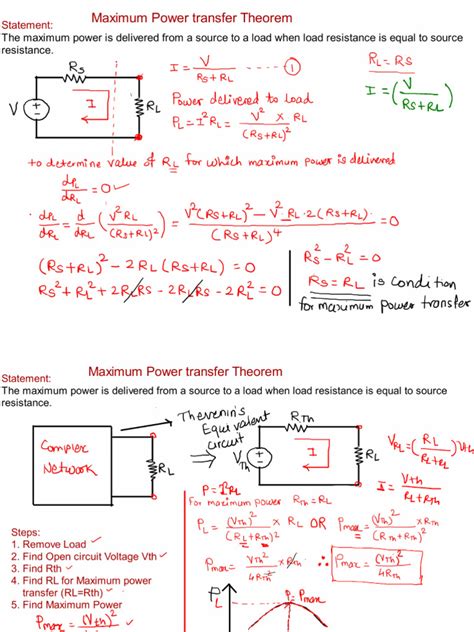 Maximum Power transfer Theorem
Statement:
The maximum power is delivered from a source to a load when load resistance is equal to source
resistance.
RS
V
I
RL
I = V / (RS+RL) — ①
Power delivered to Load
PL = I²RL = V² / (RS+RL)² × RL
RL = RS
I = (V / (RS+RL))
to determine value of RL for which maximum power is delivered
dPL/dRL = 0 ✓
dPL/dRL = d/dRL (V²RL / (RS+RL)²) = (V²(RS+RL)² − V²RL·2(RS+RL)) / (RS+RL)⁴ = 0
(RS+RL)² − 2RL(RS+RL) = 0
RS² + RL² + 2RLRS − 2RLRS − 2RL² = 0
RS² − RL² = 0
RS = RL is condition
for maximum power transfer
Maximum Power transfer Theorem
Statement:
The maximum power is delivered from a source to a load when load resistance is equal to source
resistance.
Complex
Network
RL
Thevenin's
Equivalent
circuit
⇒
RTh
VTh
I
RL
VRL = (RL / ) Vth
I = Vth / (RL+RTh)
P = I²RL
For maximum power RTh = RL
PL = (VTh)² / (RL+RTh)² × RL OR Pmax = (VTh)² / (RTh+RTh)² × RTh
Pmax = VTh² / 4RTh² × RTh ∴ Pmax = (VTh)² / 4RTh
Steps:
1. Remove Load ✓
2. Find Open circuit Voltage Vth ✓
3. Find Rth ✓
4. Find RL for Maximum power
transfer (RL=Rth) ✓
5. Find Maximum Power
Pmax = (VTh)² ✓
PL
P = Pmax